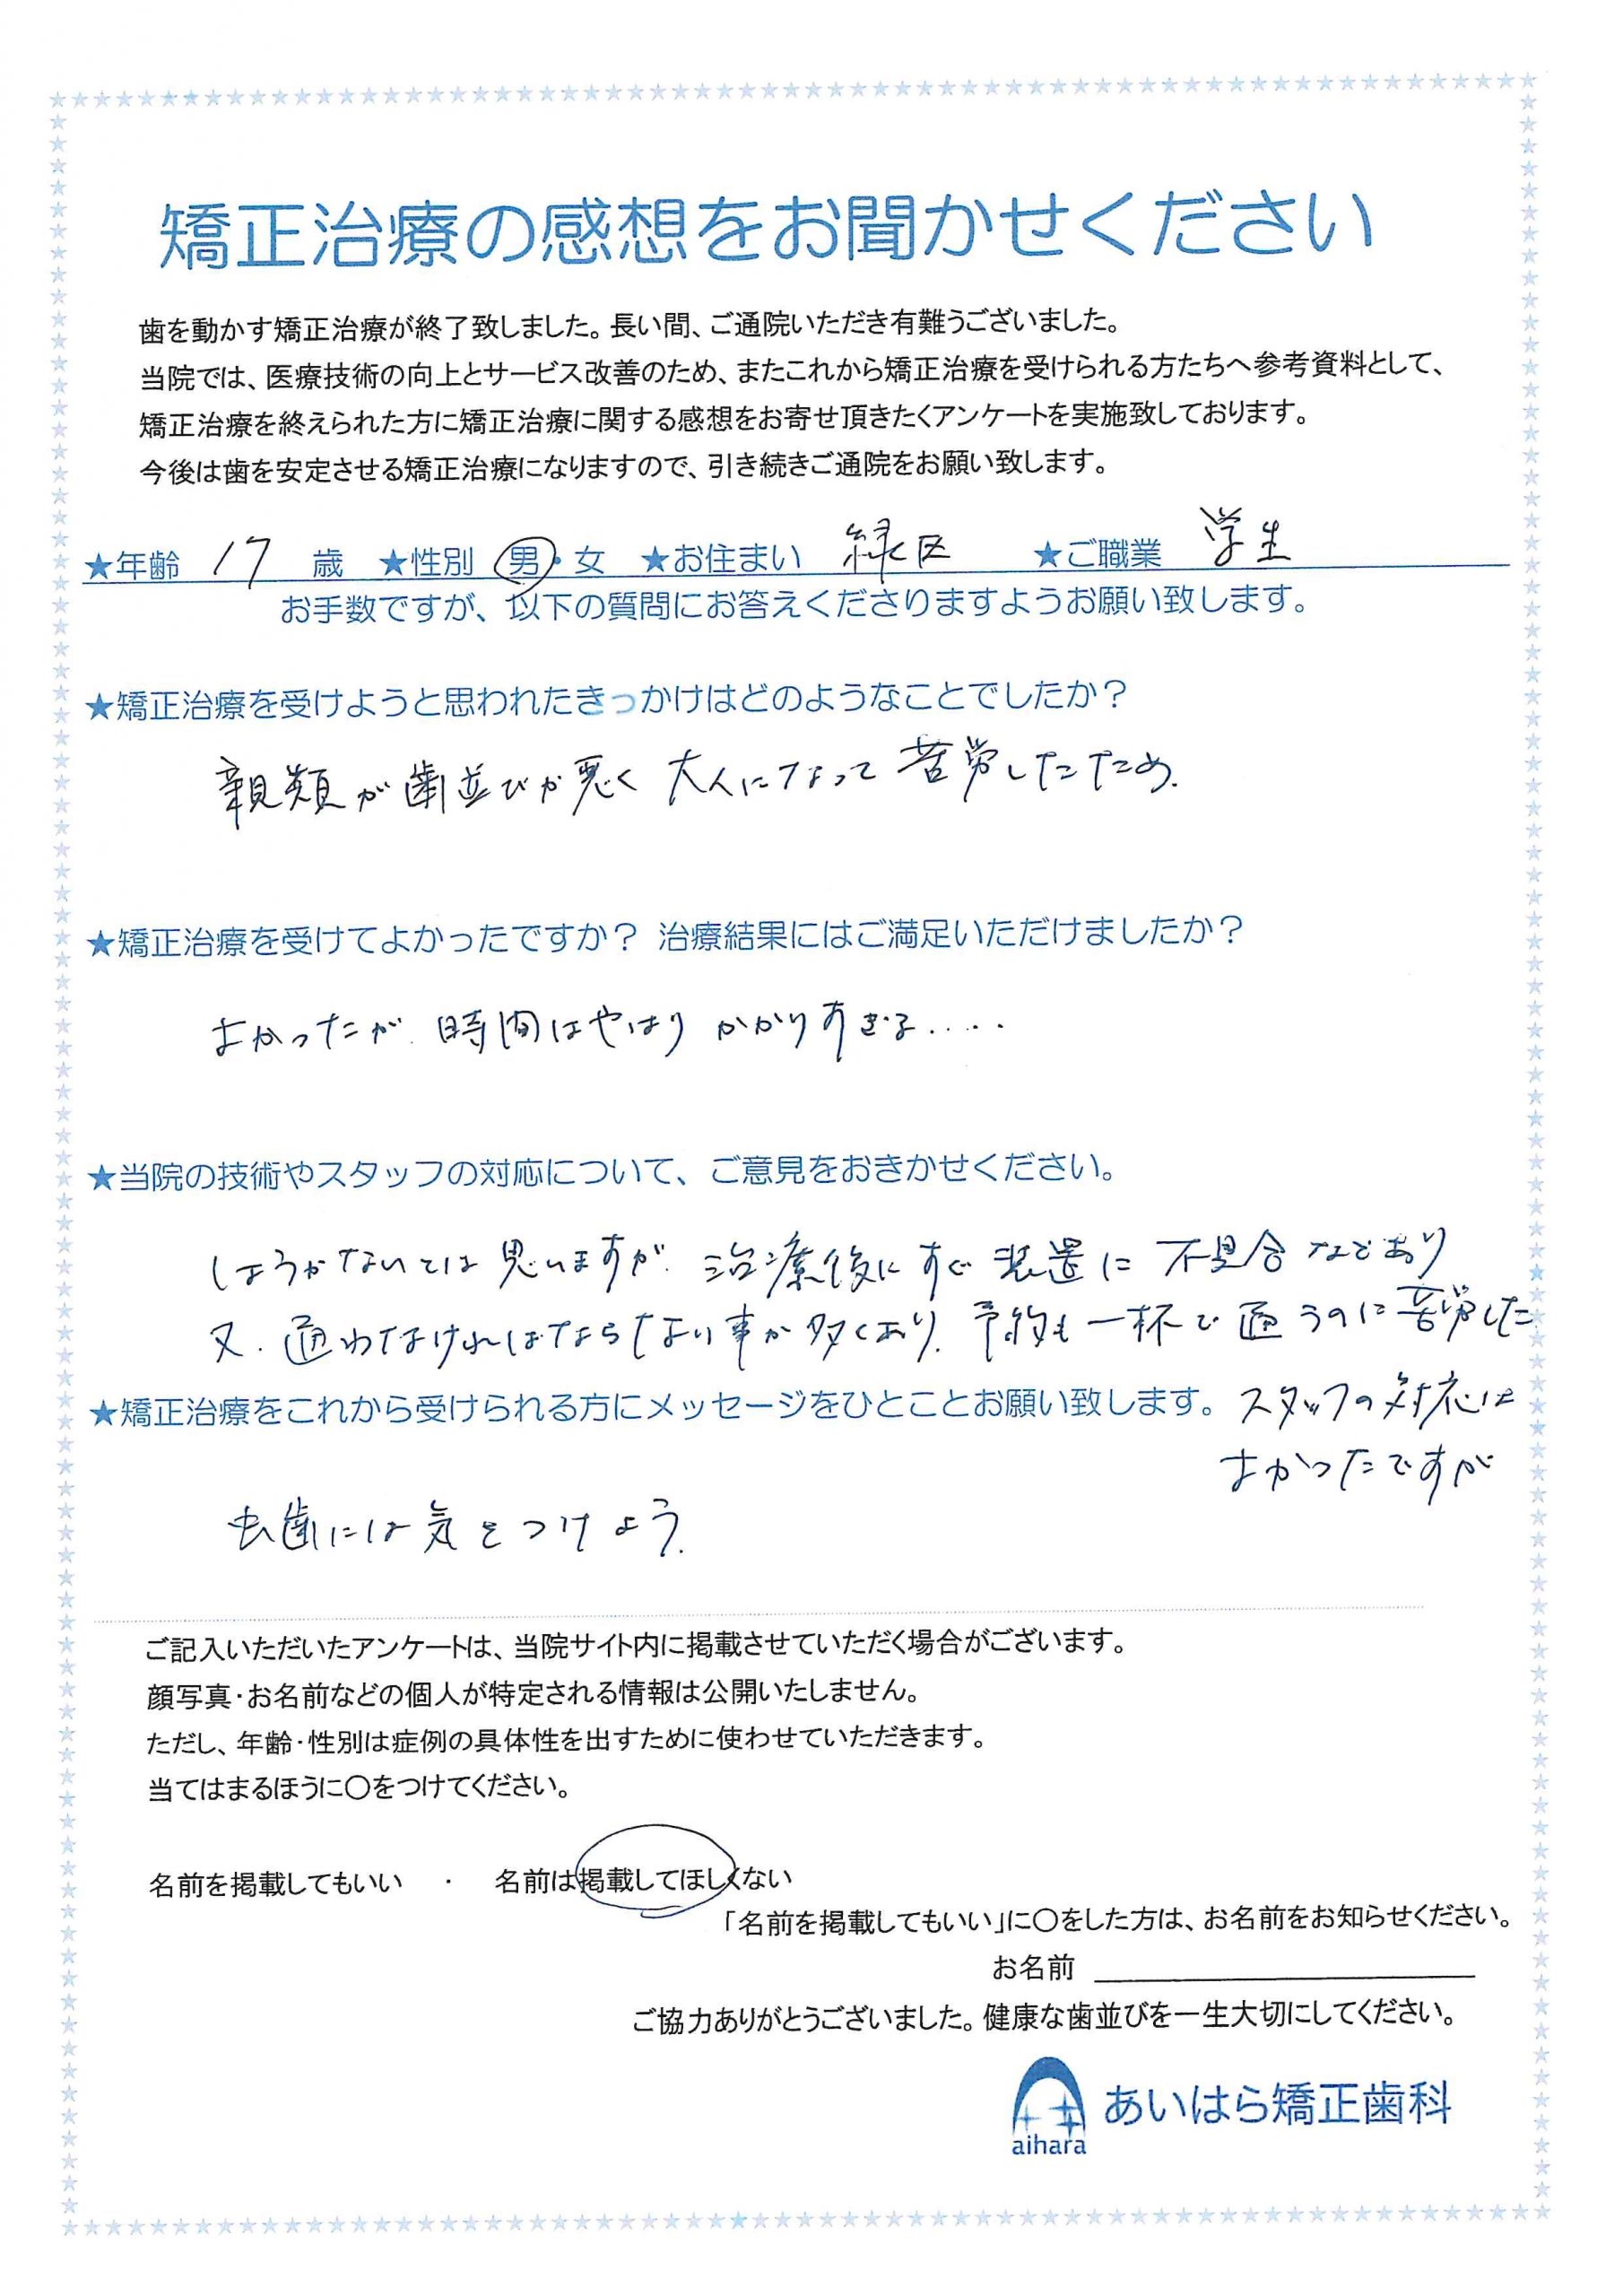 矯正治療の感想をお聞かせください
歯を動かす矯正治療が終了致しました。長い間、ご通院いただき有難うございました。
当院では、医療技術の向上とサービス改善のため、またこれから矯正治療を受けられる方たちへ参考資料として、
矯正治療を終えられた方に矯正治療に関する感想をお寄せ頂きたくアンケートを実施致しております。
今後は歯を安定させる矯正治療になりますので、引き続きご通院をお願い致します。
★年齢 17 歳 ★性別 男・女 ★お住まい 緑区 ★ご職業 学生
お手数ですが、以下の質問にお答えくださりますようお願い致します。
★矯正治療を受けようと思われたきっかけはどのようなことでしたか？
親類が歯並びが悪く大人になって苦労したため.
★矯正治療を受けてよかったですか？ 治療結果にはご満足いただけましたか？
よかったが、時間はやはりかかりすぎる.....
★当院の技術やスタッフの対応について、ご意見をおきかせください。
しょうがないとは思いますが、治療後にすぐ装置に不具合などあり
又、通わなければならない事が多くあり、予約も一杯で通うのに苦労した
★矯正治療をこれから受けられる方にメッセージをひとことお願い致します。 スタッフの対応は
よかったですが
虫歯には気をつけよう.
ご記入いただいたアンケートは、当院サイト内に掲載させていただく場合がございます。
顔写真・お名前などの個人が特定される情報は公開いたしません。
ただし、年齢・性別は症例の具体性を出すために使わせていただきます。
当てはまるほうに〇をつけてください。
名前を掲載してもいい ・ 名前は掲載してほしくない
「名前を掲載してもいい」に〇をした方は、お名前をお知らせください。
お名前
ご協力ありがとうございました。健康な歯並びを一生大切にしてください。
あいはら矯正歯科
aihara